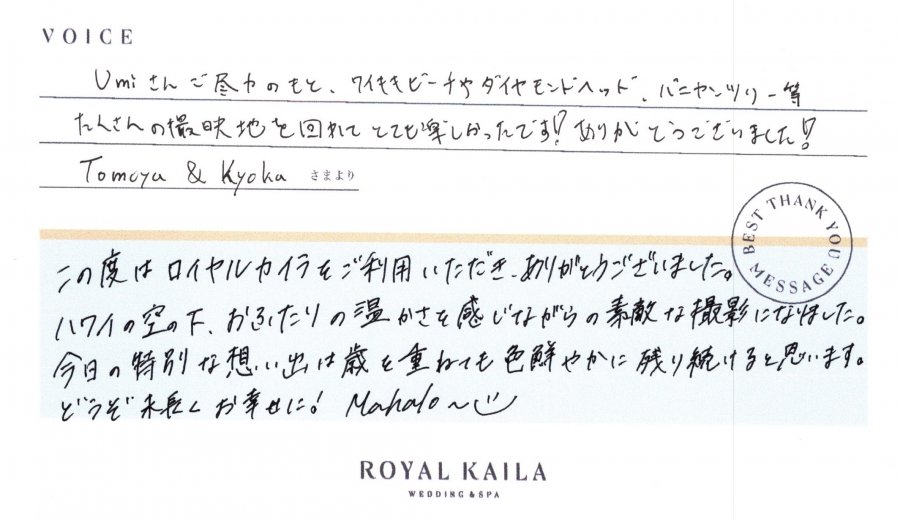 VOICE
Umiさんご尽力のもと、ワイキキビーチやダイヤモンドヘッド、バニヤンツリー等
たくさんの撮影地を回れてとても楽しかったです!ありがとうございました!
Tomoya & Kyoka さまより
BEST THANK YOU MESSAGE
この度はロイヤルカイラをご利用いただき、ありがとうございました。
ハワイの空の下、おふたりの温かさを感じながらの素敵な撮影になりました。
今日の特別な想い出は歳を重ねても色鮮やかに残り続けると思います。
どうぞ末長くお幸せに! Mahalo〜
ROYAL KAILA
WEDDING & SPA